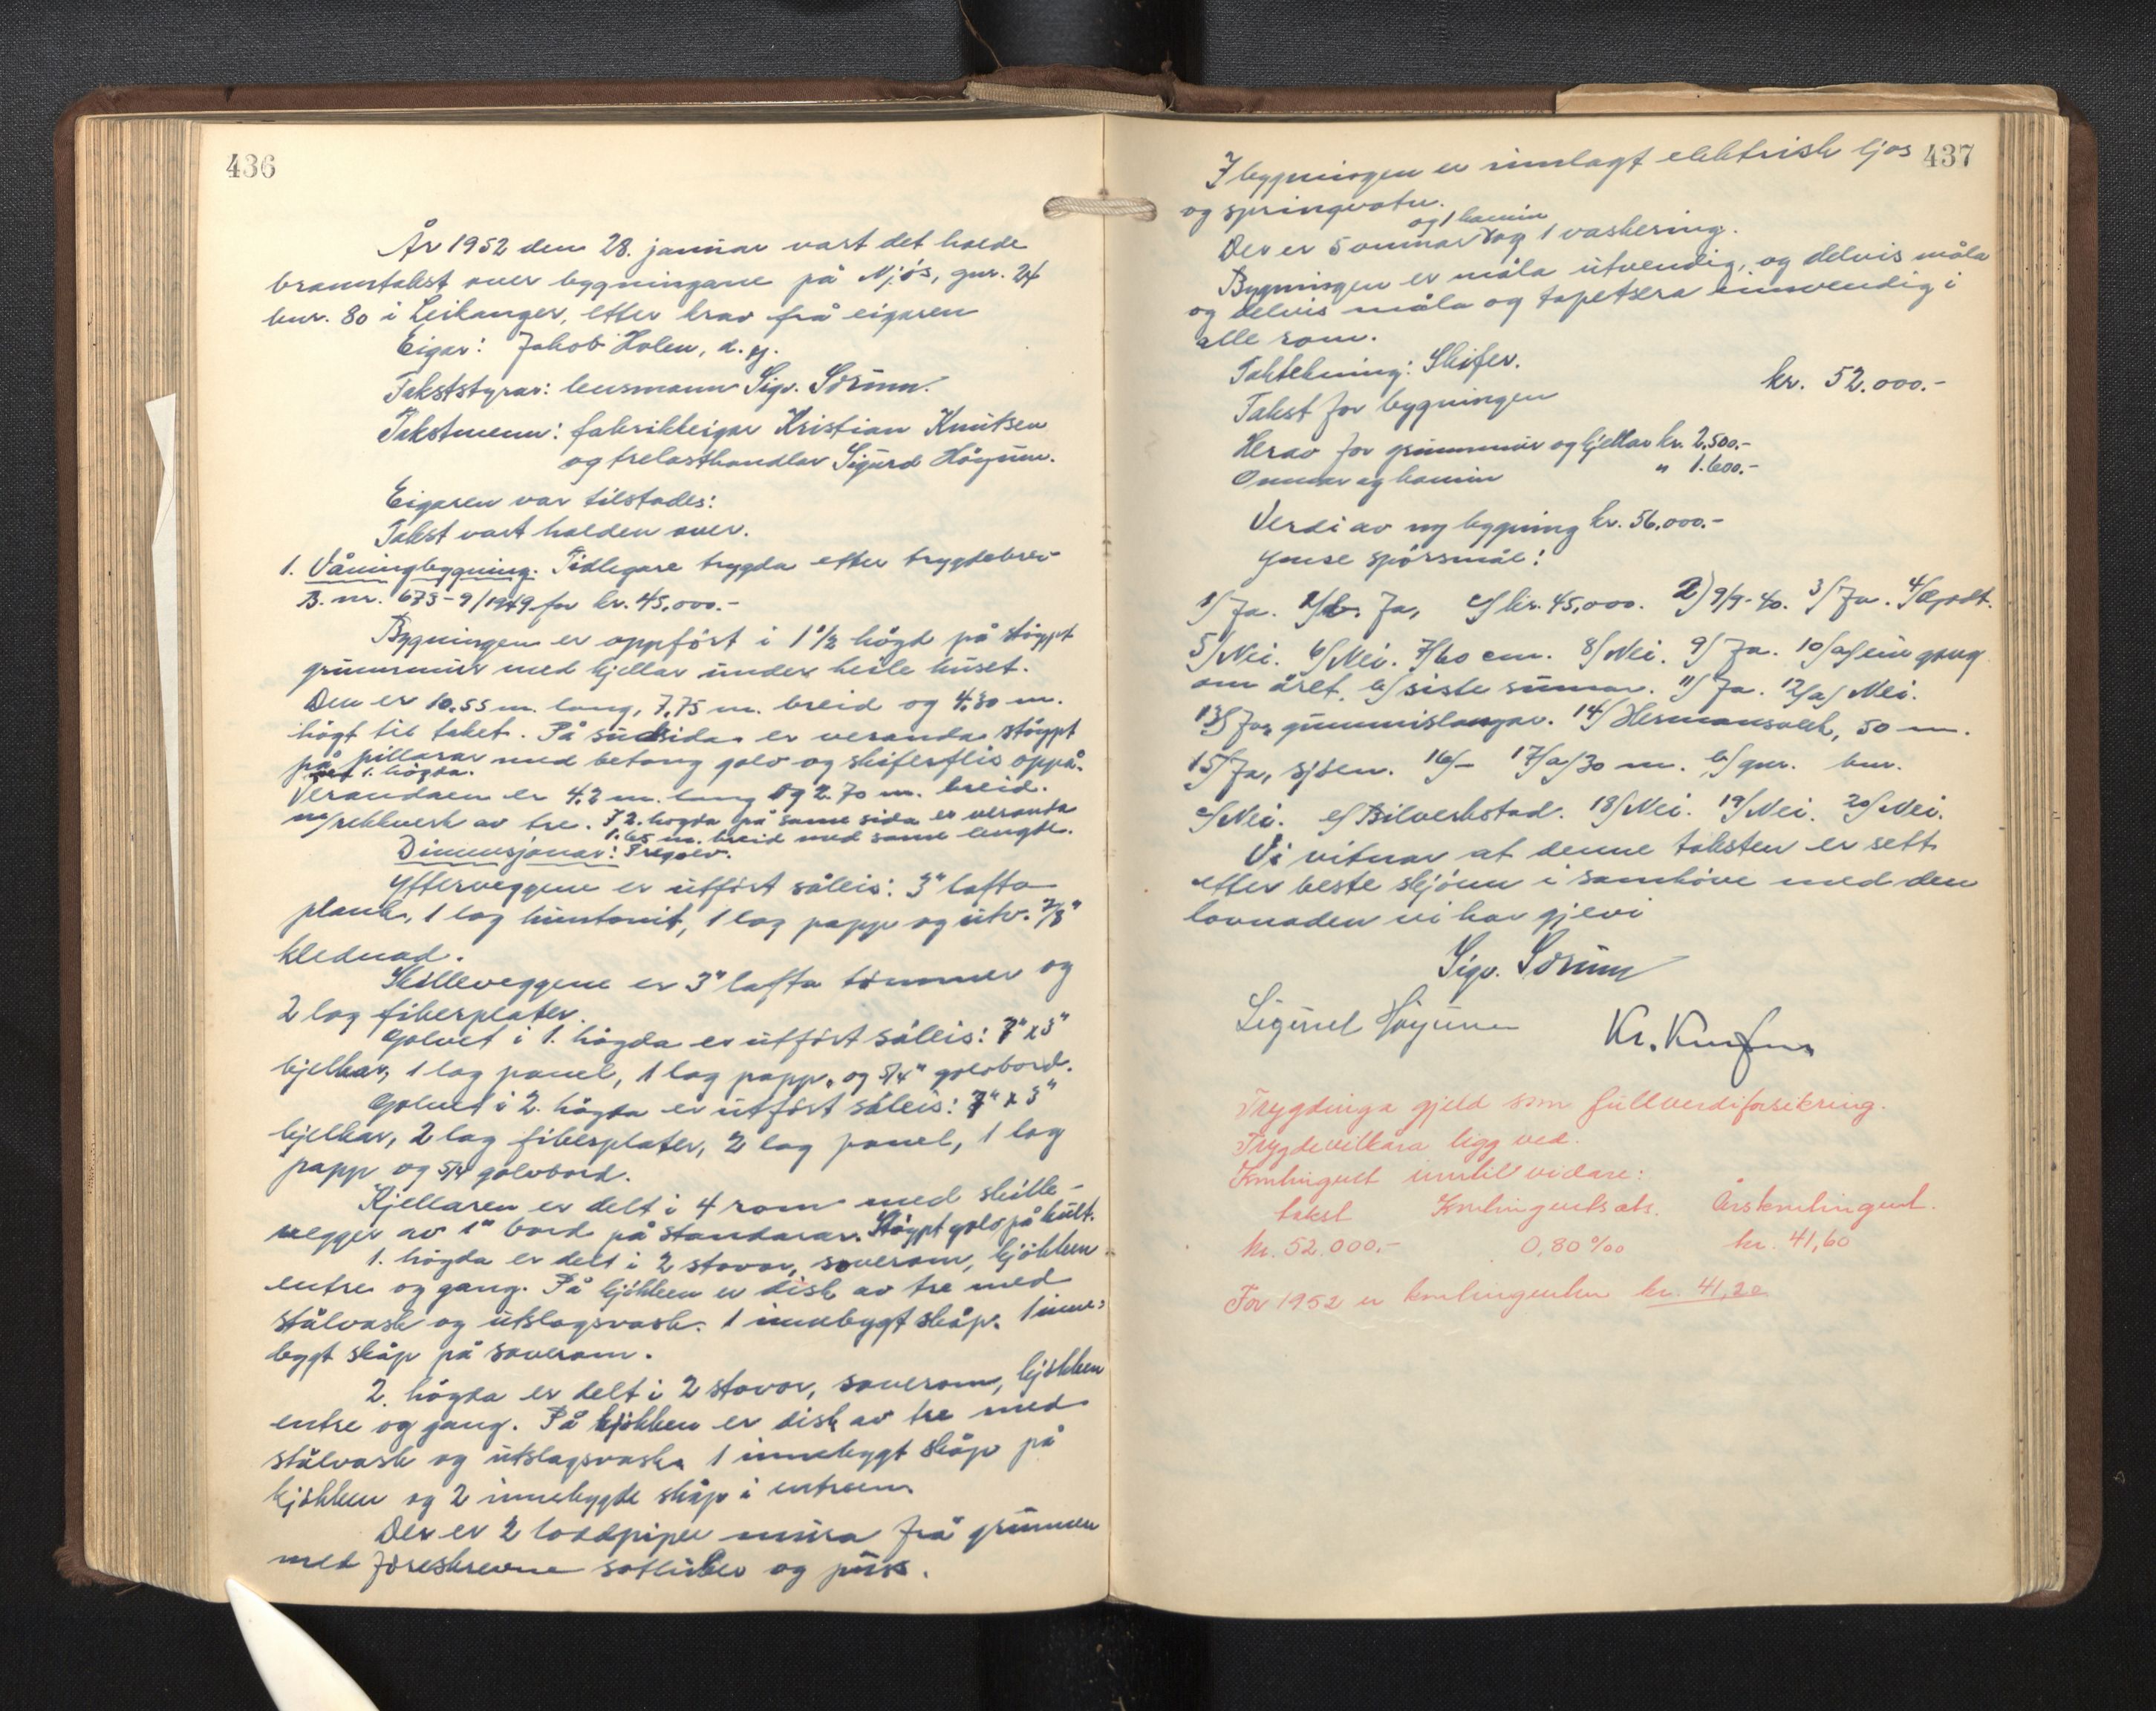 436
År 1952 den 28. januar vart det halde
branntakst over bygningane på Njøs, gnr. 24
bnr. 80 i Leikanger, etter krav frå eigaren
Eigar: Jakob Holen, d. y.
Takststyrar: lensmann Sigv. Sørum.
Takstmenn: fabrikkeigar Kristian Knutsen
og trelasthandlar Sigurd Høyum.
Eigaren var tilstades:
Takst vart halden over.
1. Våningbygning. Tidlegare trygda etter trygdebrev
B. nr. 673-9/1949 for kr. 45,000.-
Bygningen er oppført i 1 1/2 høgd på støypt
grunnmur med kjellar under heile huset.
Den er 10,55 m. lang, 7,75 m. breid og 4,30 m.
høgt til taket. På sudsida er veranda støypt
på pillarar med betong golv og skiferflis oppå.
ved 1. høgda.
Verandaen er 4,2 m. lang og 2.70 m. breid.
m/rekkverk av tre. I 2. høgda på same sida er veranda
1.65 m. breid med same lengde.
Dimensjonar: Tregolv.
Ytterveggene er utført såleis: 3" lafta
plank, 1 lag huntonit, 1 lag papp og utv. 7/8"
klednad.
Skilleveggene er 3" lafta tømmer og
2 lag fiberplater.
Golvet i 1. høgda er utført såleis: 7" x 3"
bjelkar, 1 lag panel, 1 lag papp, og 5/4" golvbord.
Golvet i 2. høgda er utført såleis: 7" x 3"
bjelkar, 2 lag fiberplater, 2 lag panel, 1 lag
papp og 5/4 golvbord.
Kjellaren er delt i 4 rom med skille-
vegger av 1" bord på standarar. Støypt golv på kult.
1. høgda er delt i 2 stovor, soverom, kjøkken
entre og gang. På kjøkken er disk av tre med
stålvask og utslagsvask. 1 innebygt skåp. 1 inne-
bygt skåp på soverom.
2. høgda er delt i 2 stovor, soverom, kjøkken
entre og gang. På kjøkken er disk av tre med
stålvask og utslagsvask 1 innebygt skåp på
kjøkken og 2 innebygde skåp i entreen
Der er 2 loddpiper mura frå grunnen
med føreskrevne sotluker og puss.
437
I bygningen er innlagt elektrisk ljos
og springvatn.
og 1 kamin
Der er 5 omnar og 1 vaskering.
Bygningen er måla utvendig, og delvis måla
og delvis måla og tapetsera innvendig i
alle rom.
Taktekning: Skifer.
Takst for bygningen kr. 52.000.-
Herav for grunnmur og kjellar kr. 2.500.-
Omnar og kamin " 1.600.-
Verdi av ny bygning kr. 56.000.-
Ymse spørsmål:
1/ Ja. b. Ja, c/ kr. 45,000. 2) 9/9-40. 3/ Ja. 4/ Godt.
5/ Nei. 6/ Nei. 7/ 60 cm. 8/ Nei. 9/ Ja. 10/a/ ein gong
om året. b/ siste sumar. 11/ Ja. 12/a/ Nei.
13/ Ja, gummislangar. 14/ Hermansverk, 50 m.
15/ Ja, sjøen. 16/- 17/a/30 m. b/ gnr. bnr.
c/ Nei. e/ Bilverkstad. 18/ Nei. 19/ Nei. 20/ Nei.
Vi vitnar at denne taksten er sett
etter beste skjønn i samhøve med den
lovnaden vi har gjevi
Sigv. Sørum
Sigurd Høyum Kr. Knutsen
Trygdinga gjeld som fullverdiforsikring.
Trygdevilkåra ligg ved.
Kontingent inntil vidare:
takst Kontingentsats. Årskontingent.
kr. 52.000.- 0,80 ‰ kr. 41,60
For 1952 er kontingenten kr. 41,20